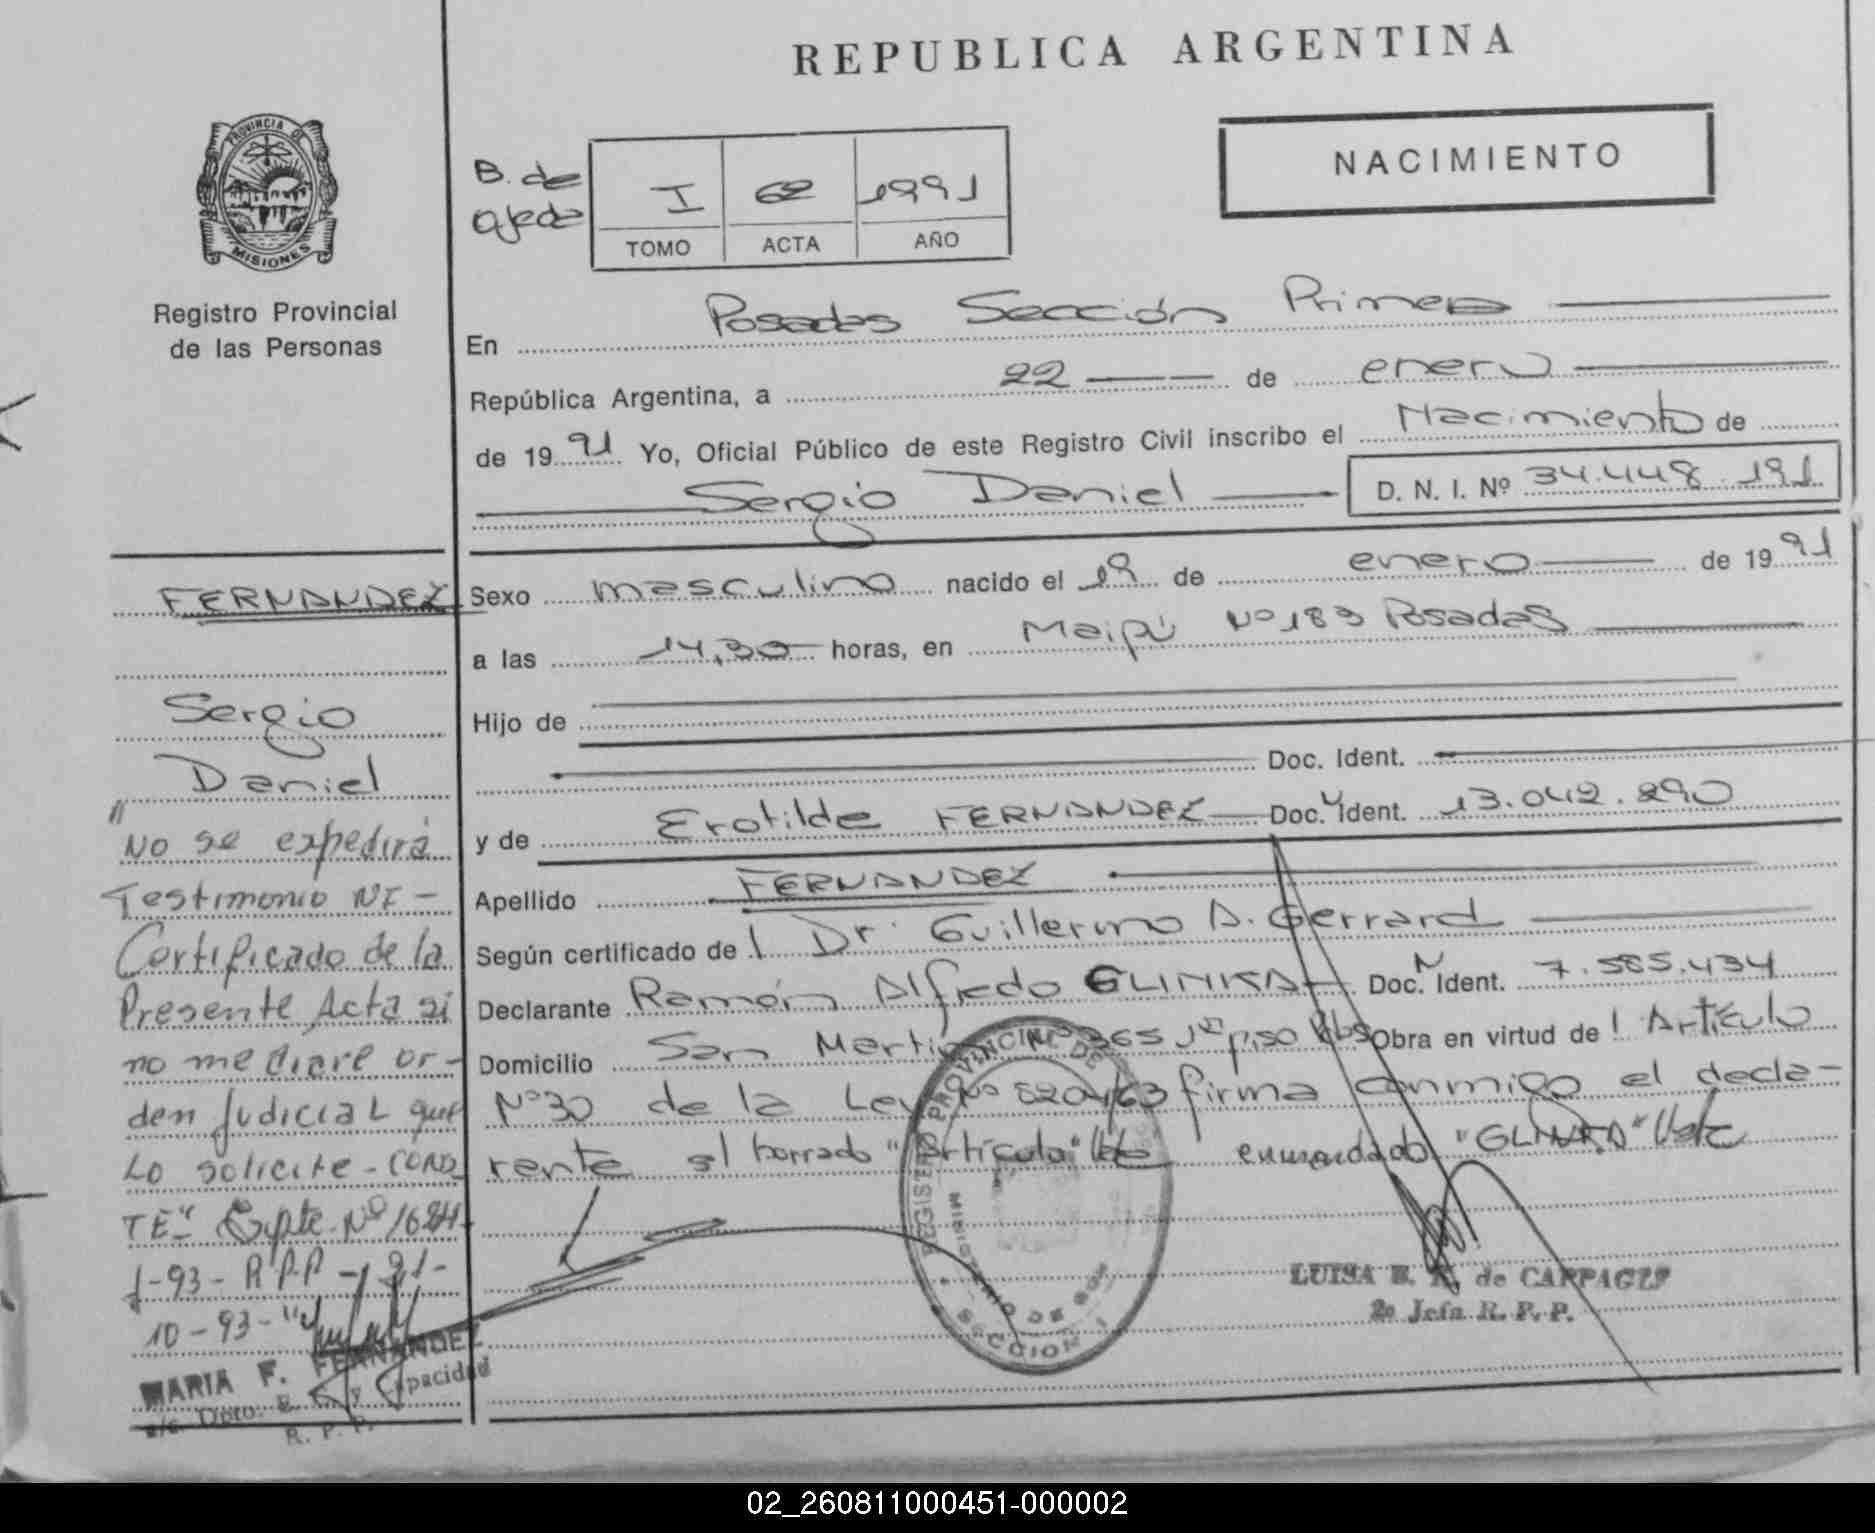 REPUBLICA ARGENTINA
PROVINCIA DE
MISIONES
Registro Provincial
de las Personas
B. de
Ojeda
I 62 1991
TOMO ACTA AÑO
NACIMIENTO
En Posadas Sección Primera
República Argentina, a 22 de enero
de 1991 Yo, Oficial Público de este Registro Civil inscribo el Nacimiento de
Sergio Daniel D. N. I. Nº 34.448.191
Sexo masculino nacido el 19 de enero de 1991
a las 14,30 horas, en Maipú Nº 183 Posadas
Hijo de
Doc. Ident.
y de Erotilde FERNANDEZ Doc. Ident. 13.042.890
Apellido FERNANDEZ
Según certificado de l Dr. Guillermo A. Gerrard
Declarante Ramón Alfredo GLINKA Doc. N Ident. 7.585.434
Domicilio San Martin 365 1er piso Obra en virtud de l Artículo
Nº 30 de la Ley Nº 8204/63 firma conmigo el decla-
rante s/ borrado "Artículo" Vale enmendado "GLINKA" Vale
FERNANDEZ
Sergio
Daniel
"No se expedirá
Testimonio NI -
Certificado de la
Presente Acta si
no mediare or-
den Judicial que
Lo solicite - CONS
TE" Expte. Nº 1684-
J-93- R.P.P - 21-
10-93-"
MARIA F. FERNANDEZ
a/c. Dpto. E. C. y Capacidad
R. P. P.
REGISTRO PROVINCIAL DE
MINISTERIO DE GOB
SECCION 1
LUISA E. K. de CARPAGIS
2o Jefa R. P. P.
02_260811000451-000002